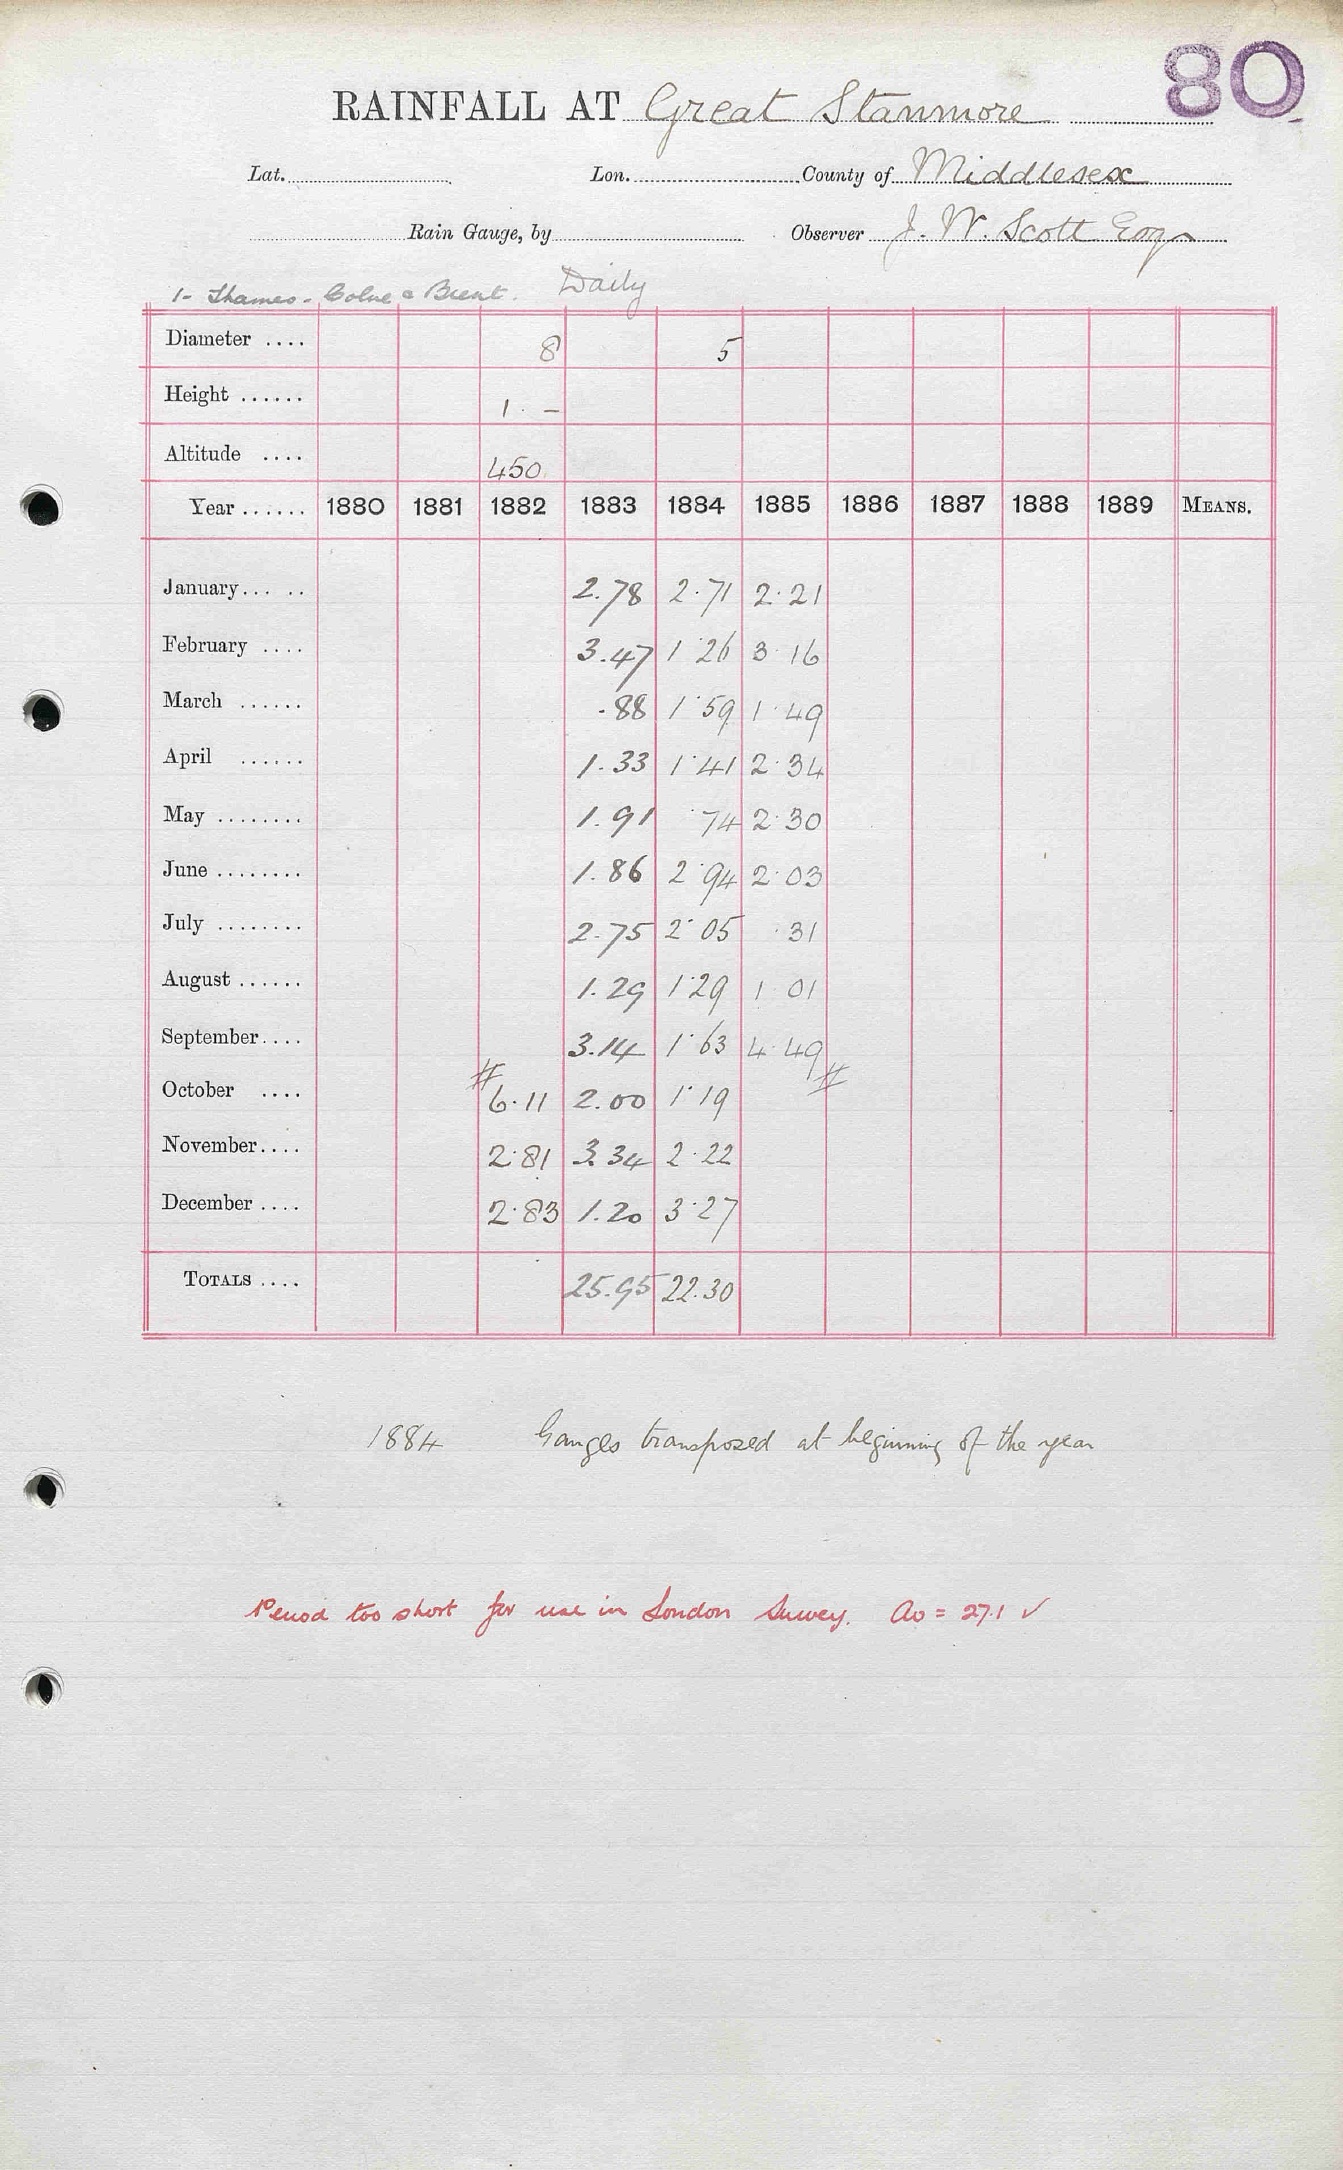 80
RAINFALL AT Great Stanmore
Lat. Lon. County of Middlesex
Rain Gauge, by Observer J. W. Scott Esqr
1- Thames - Colne & Brent. Daily
Diameter .... 8 5
Height ...... 1 . -
Altitude .... 450
Year ...... 1880 1881 1882 1883 1884 1885 1886 1887 1888 1889 MEANS.
January ... .. 2.78 2.71 2.21
February .... 3.47 1.26 3.16
March ...... .88 1.59 1.49
April ...... 1.33 1.41 2.34
May ........ 1.91 .74 2.30
June ........ 1.86 2.94 2.03
July ........ 2.75 2.05 .31
August ...... 1.29 1.29 1.01
September .... 3.14 1.63 4.49
October .... # 6.11 2.00 1.19 #
November .... 2.81 3.34 2.22
December .... 2.83 1.20 3.27
TOTALS .... 25.95 22.30
1884 Gauges transposed at beginning of the year
Period too short for use in London Survey. Av = 27.1 ✓